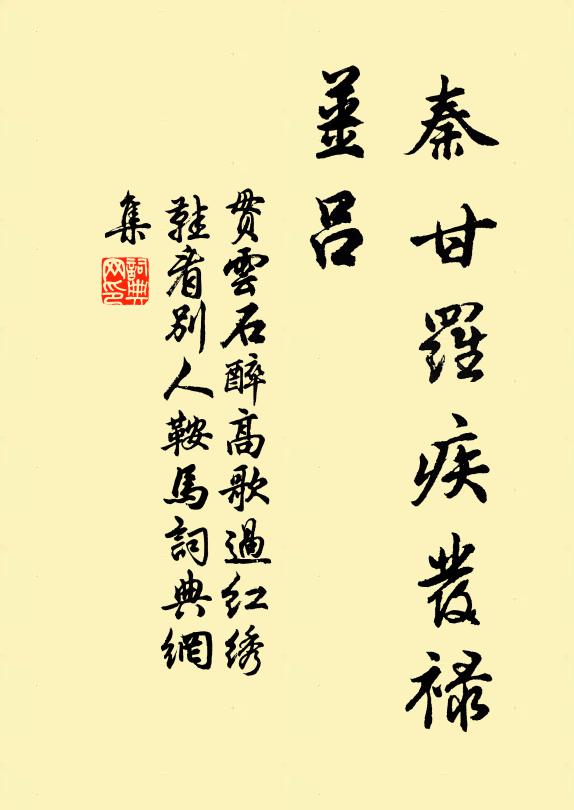 秦甘羅疾發祿
薑呂
貫雲石醉高歌過紅綉
鞋看別人鞍馬詞典網
集
詞典網印